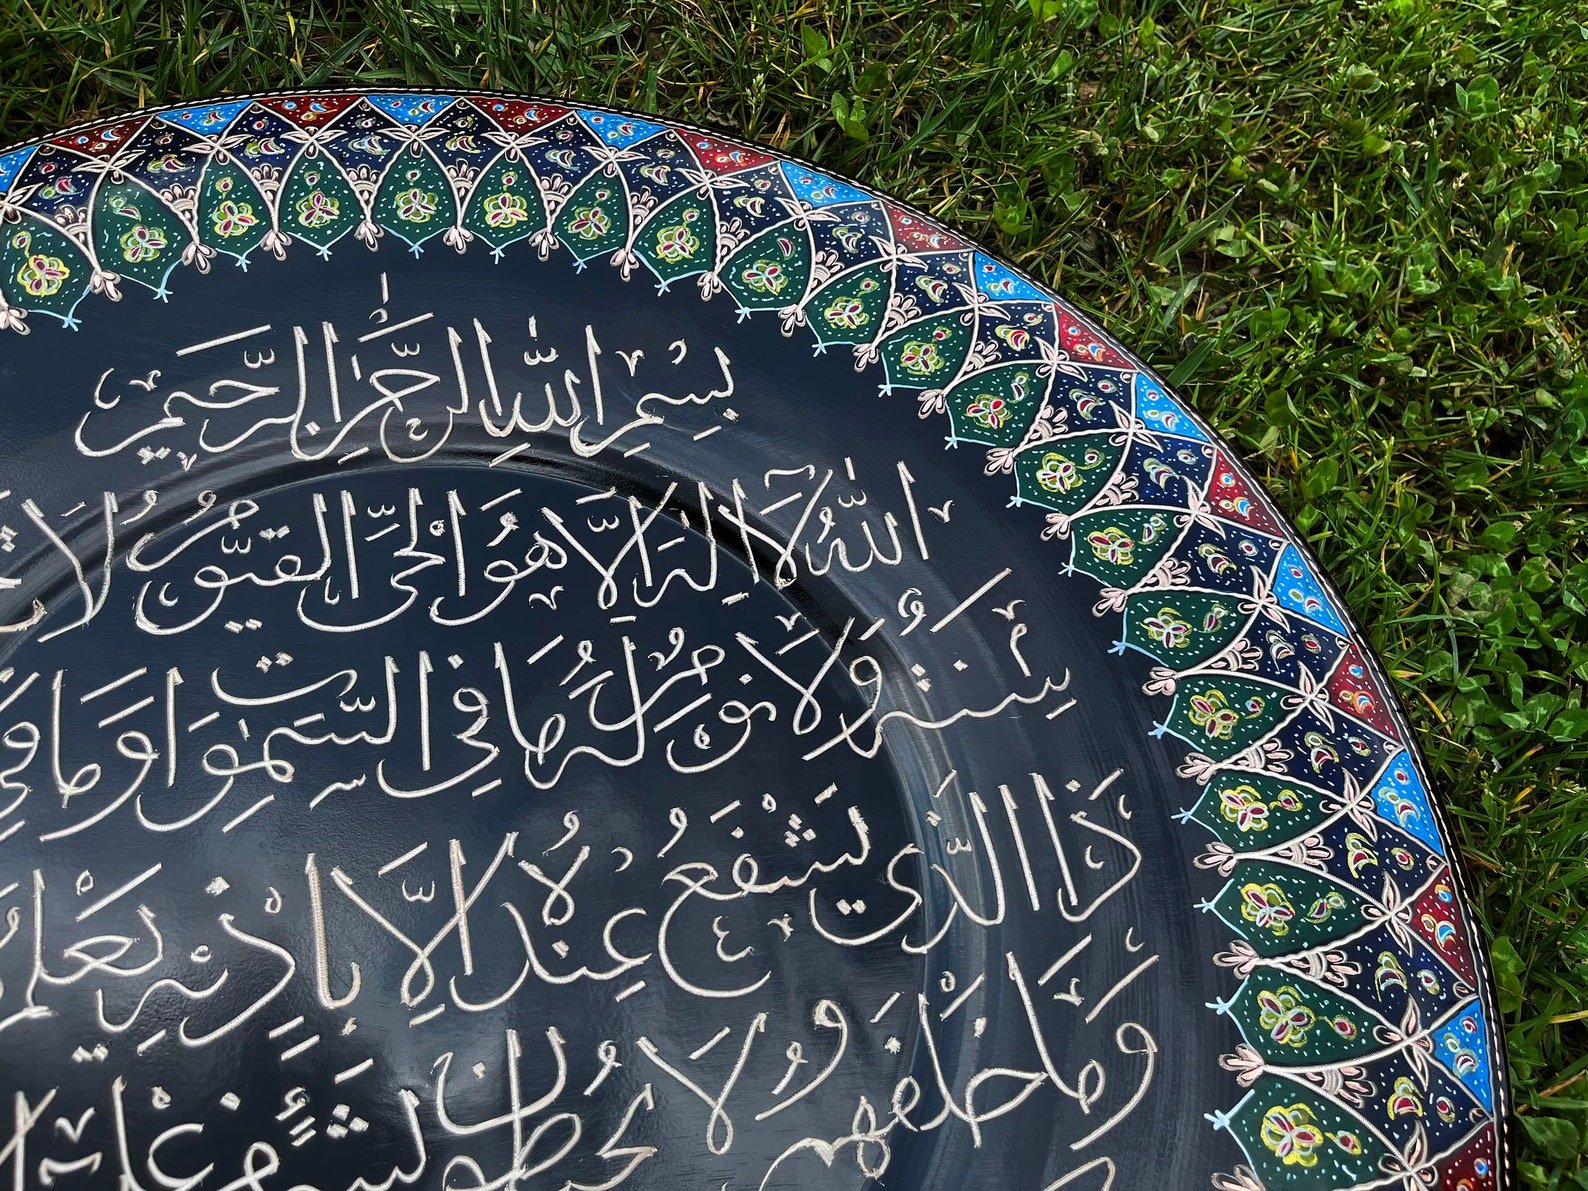 بِسْمِ اللّٰهِ الرَّحْمٰنِ الرَّحِيمِ
اللّٰهُ لَا اِلٰهَ اِلَّا هُوَ الْحَيُّ الْقَيُّومُ لَا
سِنَةٌ وَلَا نَوْمٌ لَهُ مَا فِي السَّمٰوَاتِ وَمَا فِي
ذَا الَّذِي يَشْفَعُ عِنْدَهُ اِلَّا بِاِذْنِهِ يَعْلَمُ
وَمَا خَلْفَهُمْ وَلَا يُحِيطُونَ بِشَيْءٍ مِنْ